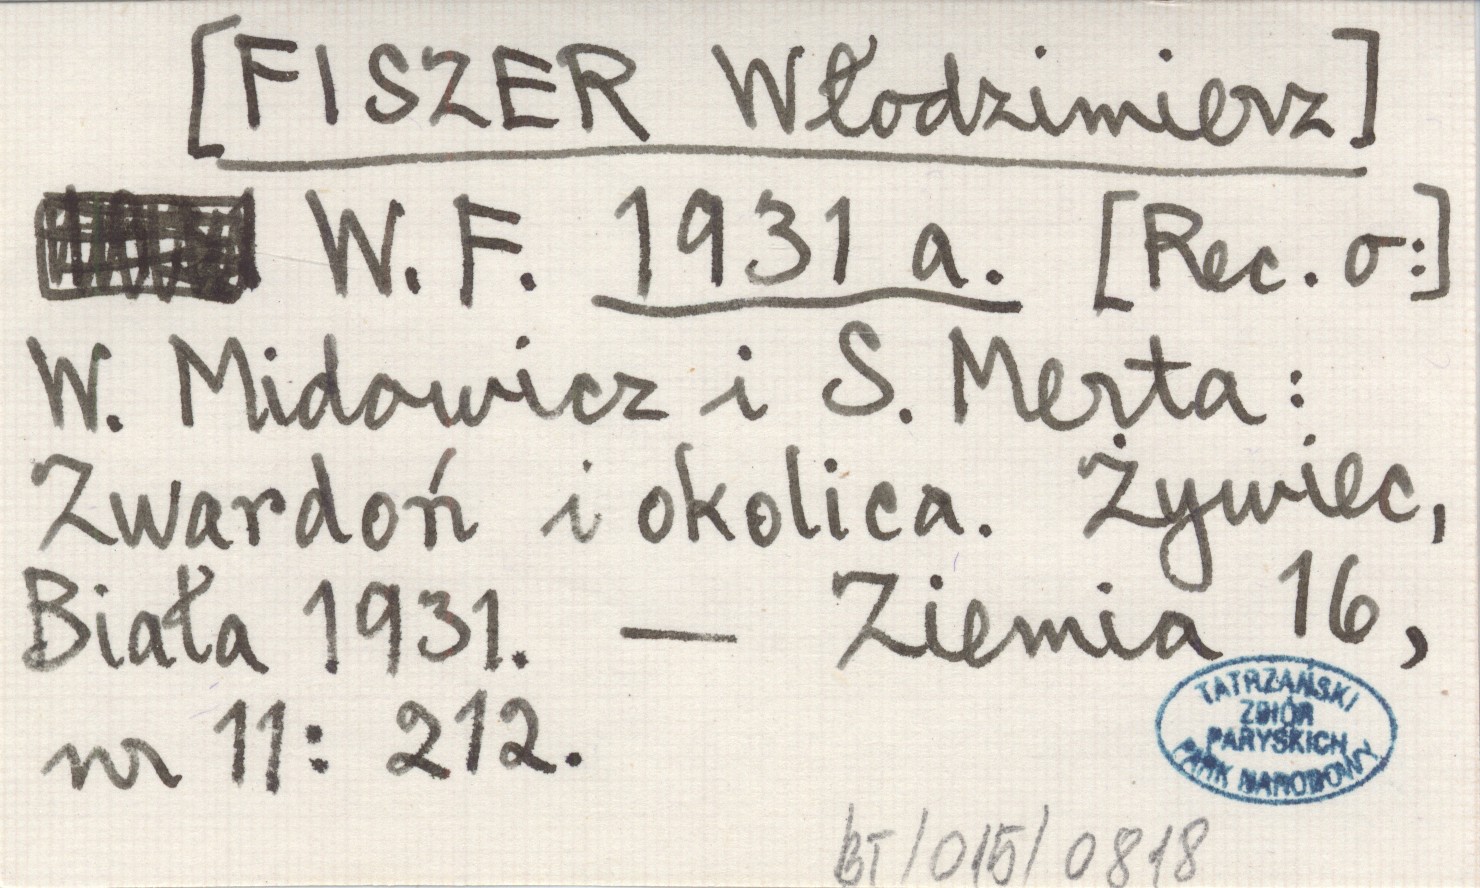 [FISZER Włodzimierz]
W. F. 1931 a. [Rec. o:]
W. Midowicz i S. Merta:
Zwardoń i okolica. Żywiec,
Biała 1931. — Ziemia 16,
nr 11: 212.
TATRZAŃSKI
ZBIÓR
PARYSKICH
PARK NARODOWY
BT/015/0818